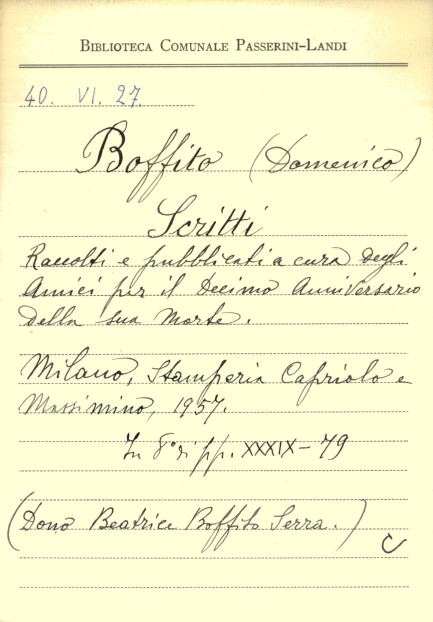 BIBLIOTECA COMUNALE PASSERINI-LANDI
40. VI. 27.
Boffito (Domenico)
Scritti
Raccolti e pubblicati a cura degli
Amici per il Decimo Anniversario
della sua Morte.
Milano, Stamperia Capriolo e
Massimino, 1957.
In 8° di pp. XXXIX-79
(Dono Beatrice Boffito Serra.)
C